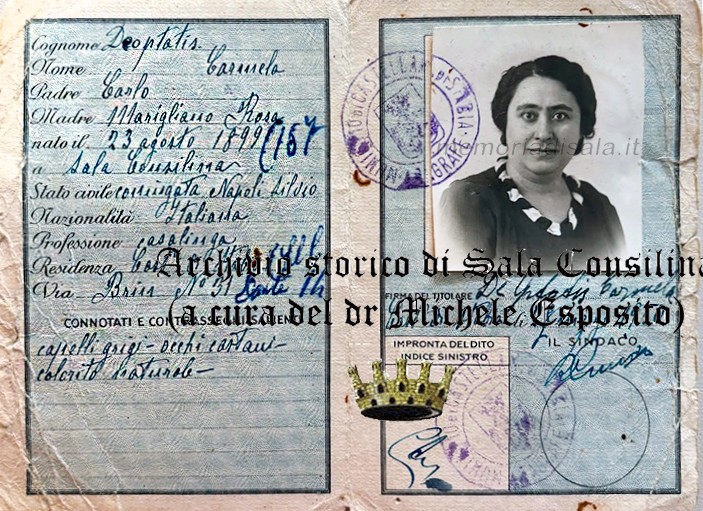 Cognome Deoptatis
Nome Carmela
Padre Carlo
Madre Marigliano Rosa
nato il 23 agosto 1899 (157
a Sala Consilina
Stato civile coniugata Napoli Silvio
Nazionalità Italiana
Professione casalinga
Residenza
Via Brin N° 51
CONNOTATI E CONTRASSEGNI SALIENTI
capelli grigi - occhi castani -
colorito naturale -
memoriadisala.it
Archivio storico di Sala Consilina
(a cura del dr Michele Esposito)
FIRMA DEL TITOLARE De Optatis Carmela
IL SINDACO
IMPRONTA DEL DITO
INDICE SINISTRO